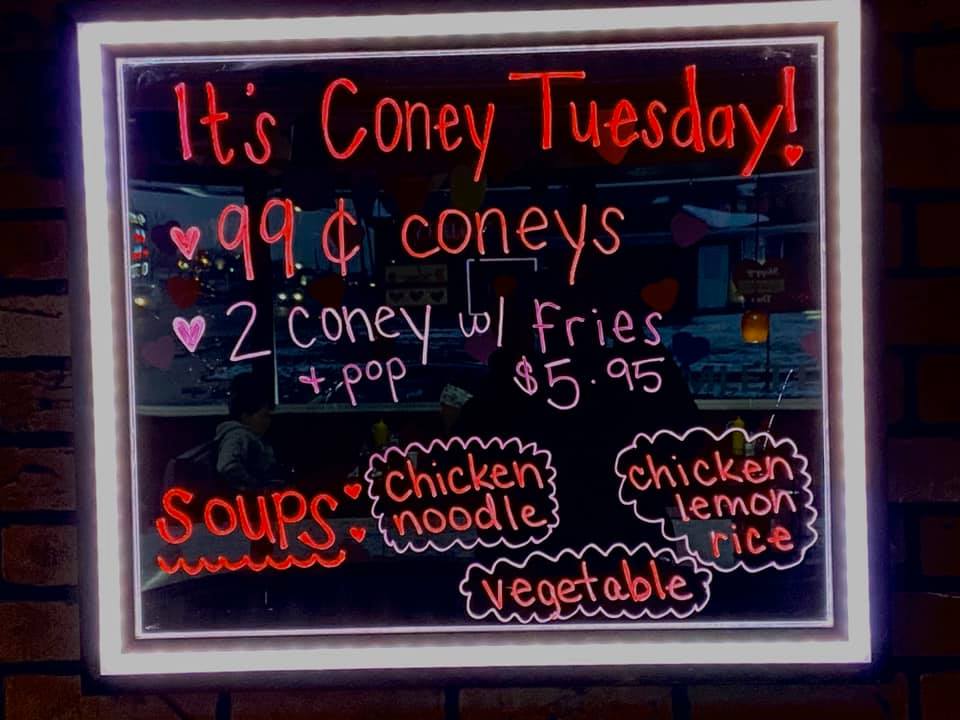 It's Coney Tuesday!
99¢ coneys
2 coney w/ fries
+ pop $5.95
soups:
chicken
noodle
chicken
lemon
rice
vegetable